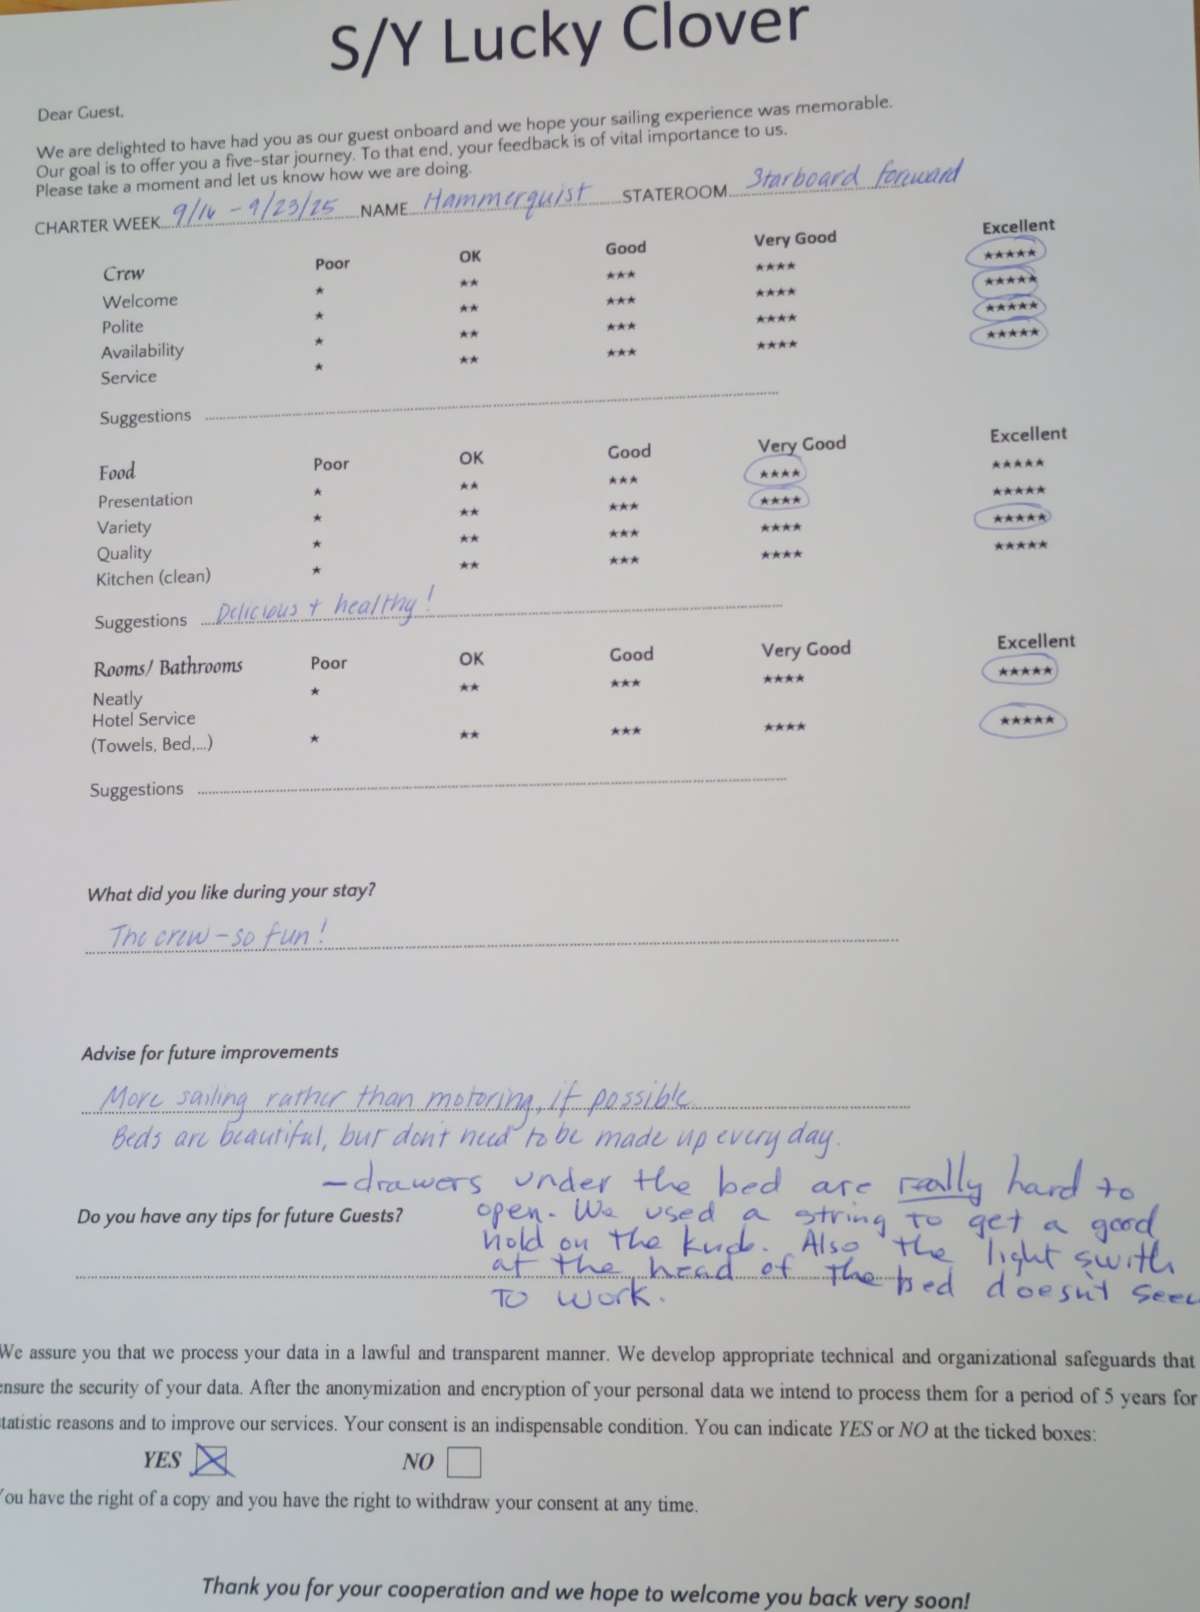 S/Y Lucky Clover
Dear Guest,
We are delighted to have had you as our guest onboard and we hope your sailing experience was memorable.
Our goal is to offer you a five-star journey. To that end, your feedback is of vital importance to us.
Please take a moment and let us know how we are doing.
CHARTER WEEK 9/16 - 9/23/25 NAME Hammerquist STATEROOM Starboard forward
Crew Poor OK Good Very Good Excellent
Welcome ★ ★★ ★★★ ★★★★ ★★★★★
Polite ★ ★★ ★★★ ★★★★ ★★★★★
Availability ★ ★★ ★★★ ★★★★ ★★★★★
Service ★ ★★ ★★★ ★★★★ ★★★★★
Suggestions
Food Poor OK Good Very Good Excellent
Presentation ★ ★★ ★★★ ★★★★ ★★★★★
Variety ★ ★★ ★★★ ★★★★ ★★★★★
Quality ★ ★★ ★★★ ★★★★ ★★★★★
Kitchen (clean) ★ ★★ ★★★ ★★★★ ★★★★★
Suggestions Delicious + healthy!
Rooms/ Bathrooms Poor OK Good Very Good Excellent
Neatly ★ ★★ ★★★ ★★★★ ★★★★★
Hotel Service
(Towels, Bed,...) ★ ★★ ★★★ ★★★★ ★★★★★
Suggestions
What did you like during your stay?
The crew - so fun!
Advise for future improvements
More sailing rather than motoring, if possible.
Beds are beautiful, but don't need to be made up every day.
- drawers under the bed are really hard to
Do you have any tips for future Guests?
open. We used a string to get a good
hold on the knob. Also the light swith
at the head of the bed doesn't seem
to work.
We assure you that we process your data in a lawful and transparent manner. We develop appropriate technical and organizational safeguards that
ensure the security of your data. After the anonymization and encryption of your personal data we intend to process them for a period of 5 years for
statistic reasons and to improve our services. Your consent is an indispensable condition. You can indicate YES or NO at the ticked boxes:
YES NO
You have the right of a copy and you have the right to withdraw your consent at any time.
Thank you for your cooperation and we hope to welcome you back very soon!